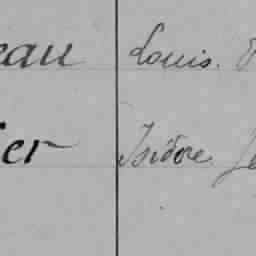 eau Louis.
ier Isidore